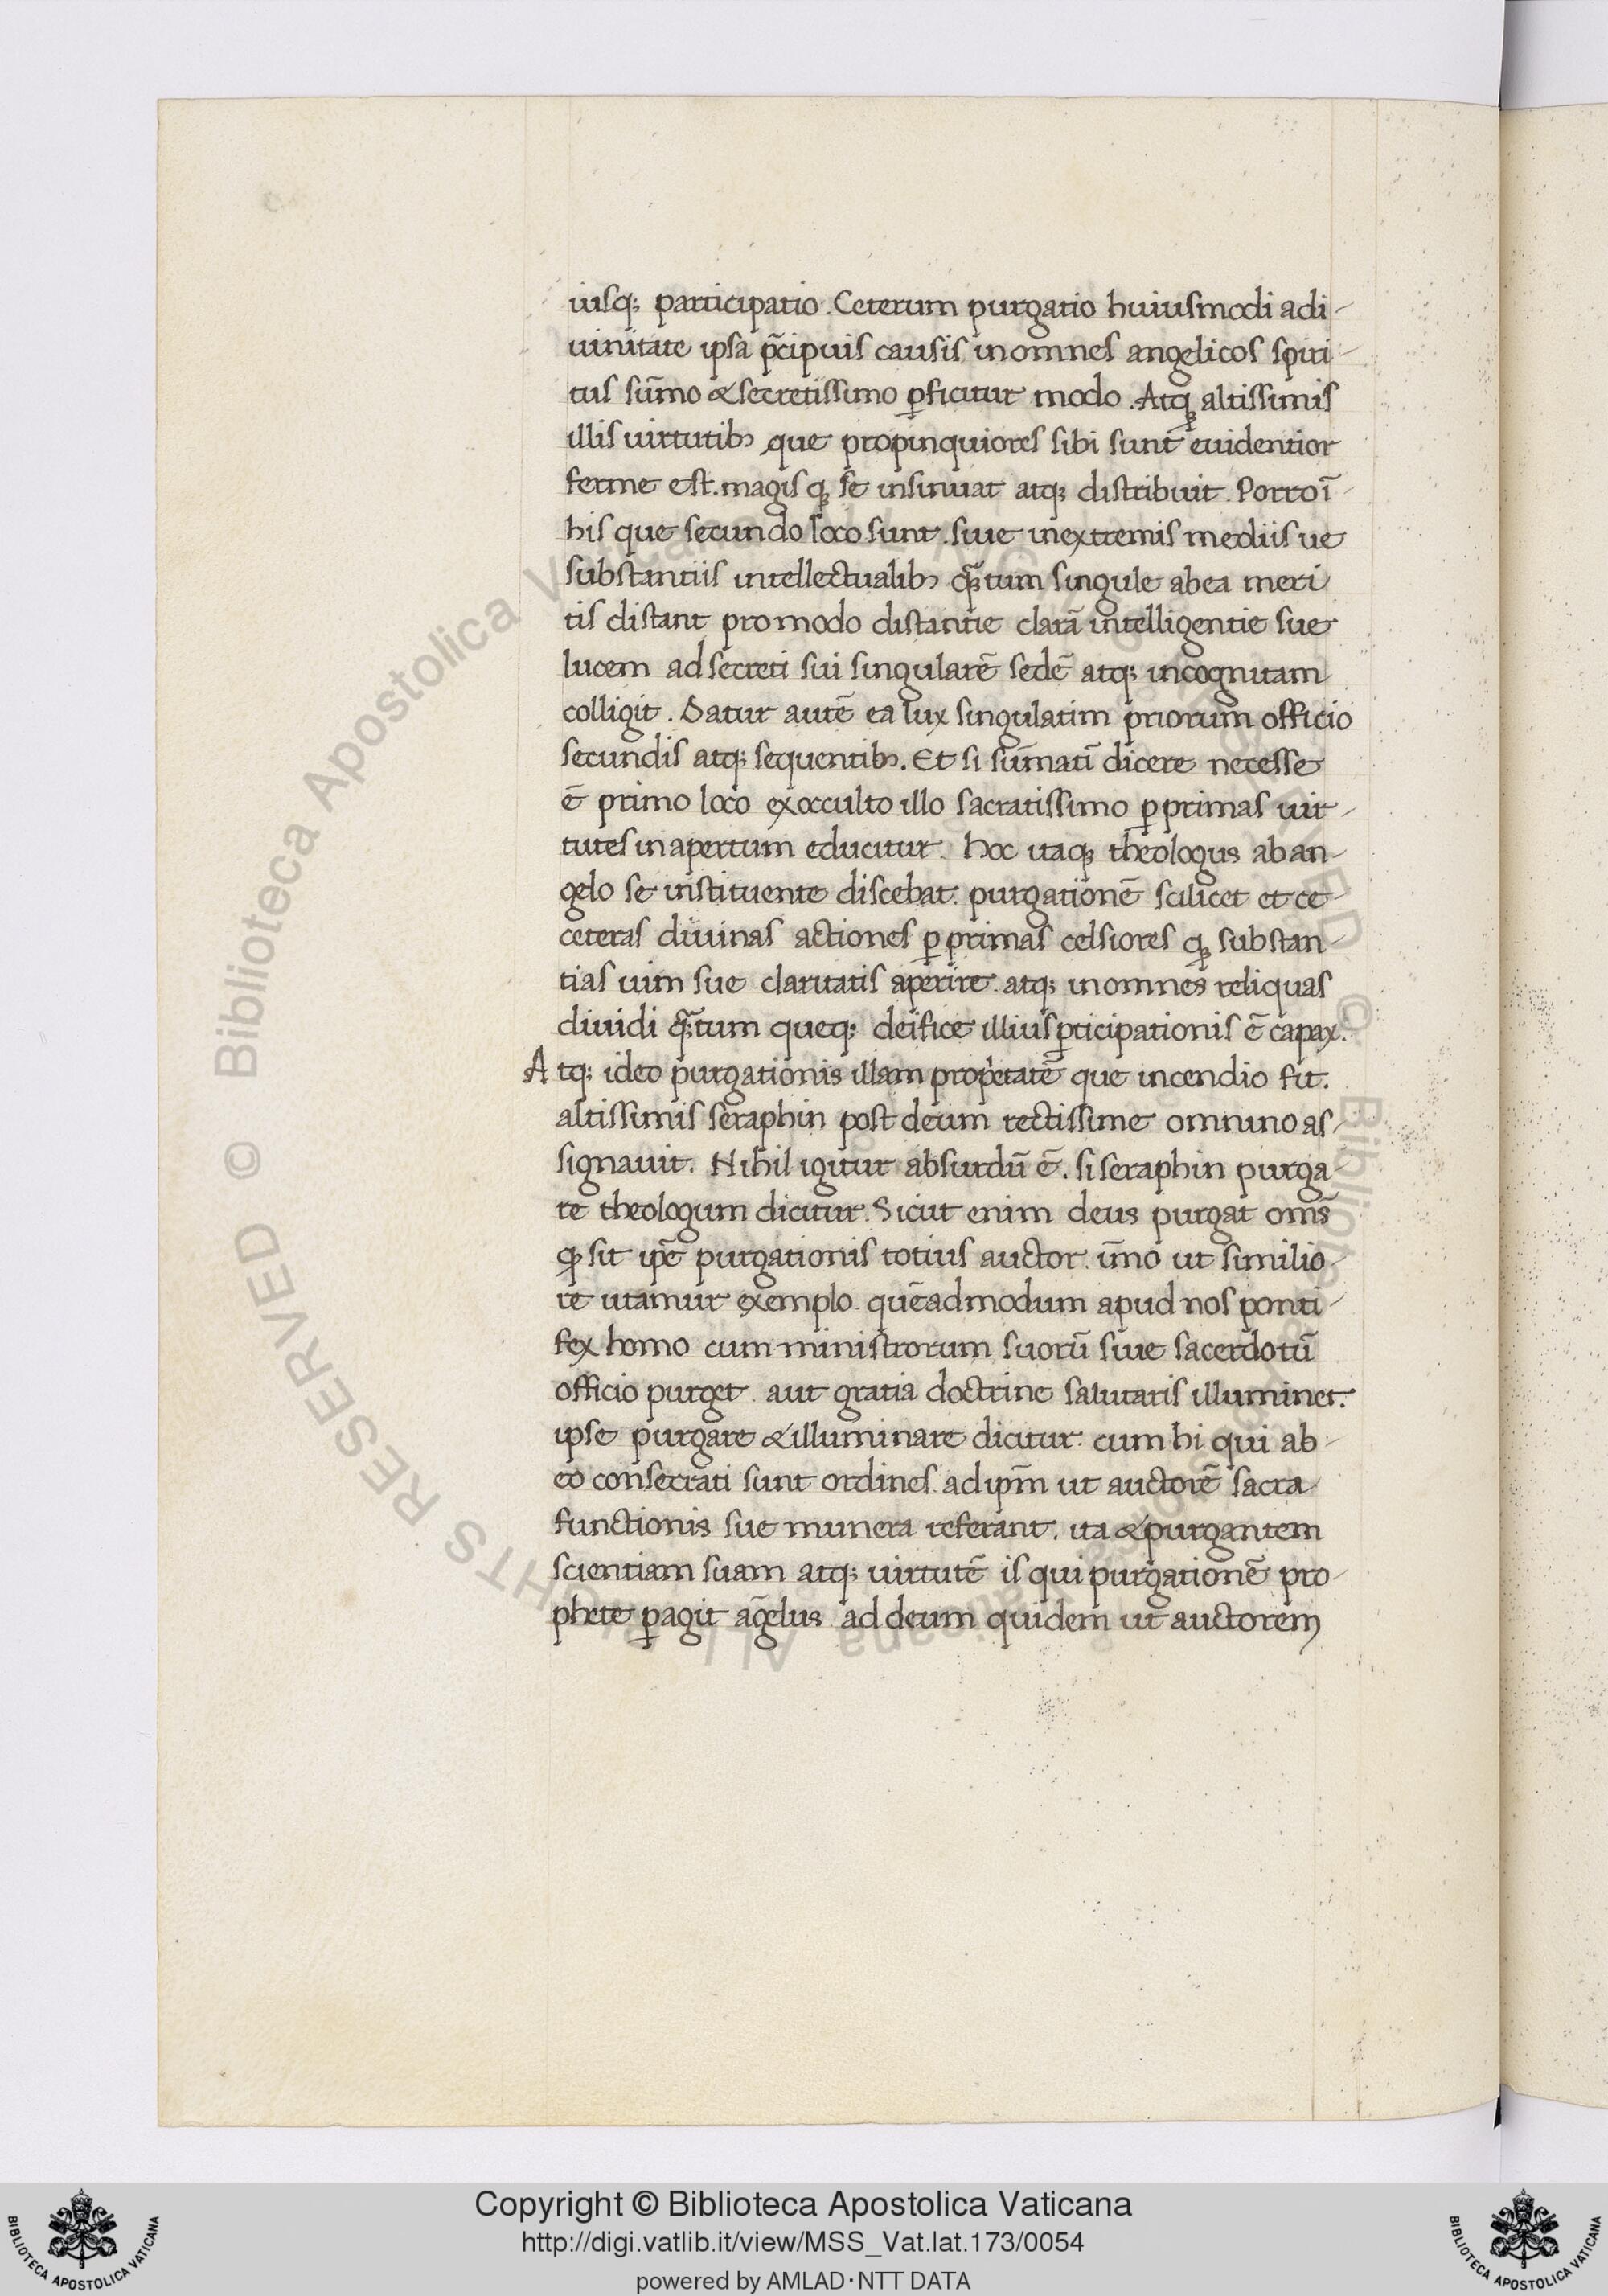 iusq; participatio. Ceterum purgatio huiusmodi adi-
uinitate ipsa p̄cipuis causis in omnes angelicos spiri-
tus sūmo & secretissimo ꝑficitur modo. Atq; altissimis
illis uirtutibꝫ que propinquiores sibi sunt euidentior
ferme est. magis q; se insinuat atq; distribuit. Porro ī-
his que secundo loco sunt. siue in extremis mediis ue
substantiis intellectualibꝫ qꝫ̄tum singule ab ea meri
tis distant pro modo distantie clarā intelligentie sue
lucem ad secreti sui singularē sedē atq; incognitam
colligit. Datur autē ea lux singulatim priorum officio
secundis atq; sequentibꝫ. Et si sūmatī dicere necesse
ē primo loco ex occulto illo sacratissimo ꝑ primas uir-
tutes in apertum educitur. Hoc itaq; theologus ab an-
gelo se instituente discebat. purgationē scilicet et ce
ceteras diuinas actiones ꝑ primas celsiores q; substan-
tias uim sue claritatis aperire. atq; in omnes reliquas
diuidi qꝫ̄tum queq; deifice illius ꝑticipationis ē capax.
Atq; ideo purgationis illam prop̀etatē que incendio fit.
altissimis seraphin post deum rectissime omnino as-
signauit. Nihil igitur absurdū ē. si seraphin purga-
re theologum dicitur. Sicut enim deus purgat om̄s
ꝙ sit ip̄e purgationis totius auctor. īmo ut similio-
re utamur exemplo. quēadmodum apud nos ponti-
fex homo cum ministrorum suorū siue sacerdotū
officio purget. aut gratia doctrine salutaris illuminet.
ipse purgare & illuminare dicitur. cum hi qui ab-
eo consecrati sunt ordines. ad ip̄m ut auctorē sacra
functionis sue munera referant. ita & purgantem
scientiam suam atq; uirtutē is qui purgationē pro-
phete ꝑagit āgelus. ad deum quidem ut auctorem
Copyright © Biblioteca Apostolica Vaticana
http://digi.vatlib.it/view/MSS_Vat.lat.173/0054
powered by AMLAD·NTT DATA
BIBLIOTECA APOSTOLICA VATICANA
BIBLIOTECA APOSTOLICA VATICANA
© Biblioteca Apostolica Vaticana ALL RIGHTS RESERVED ©